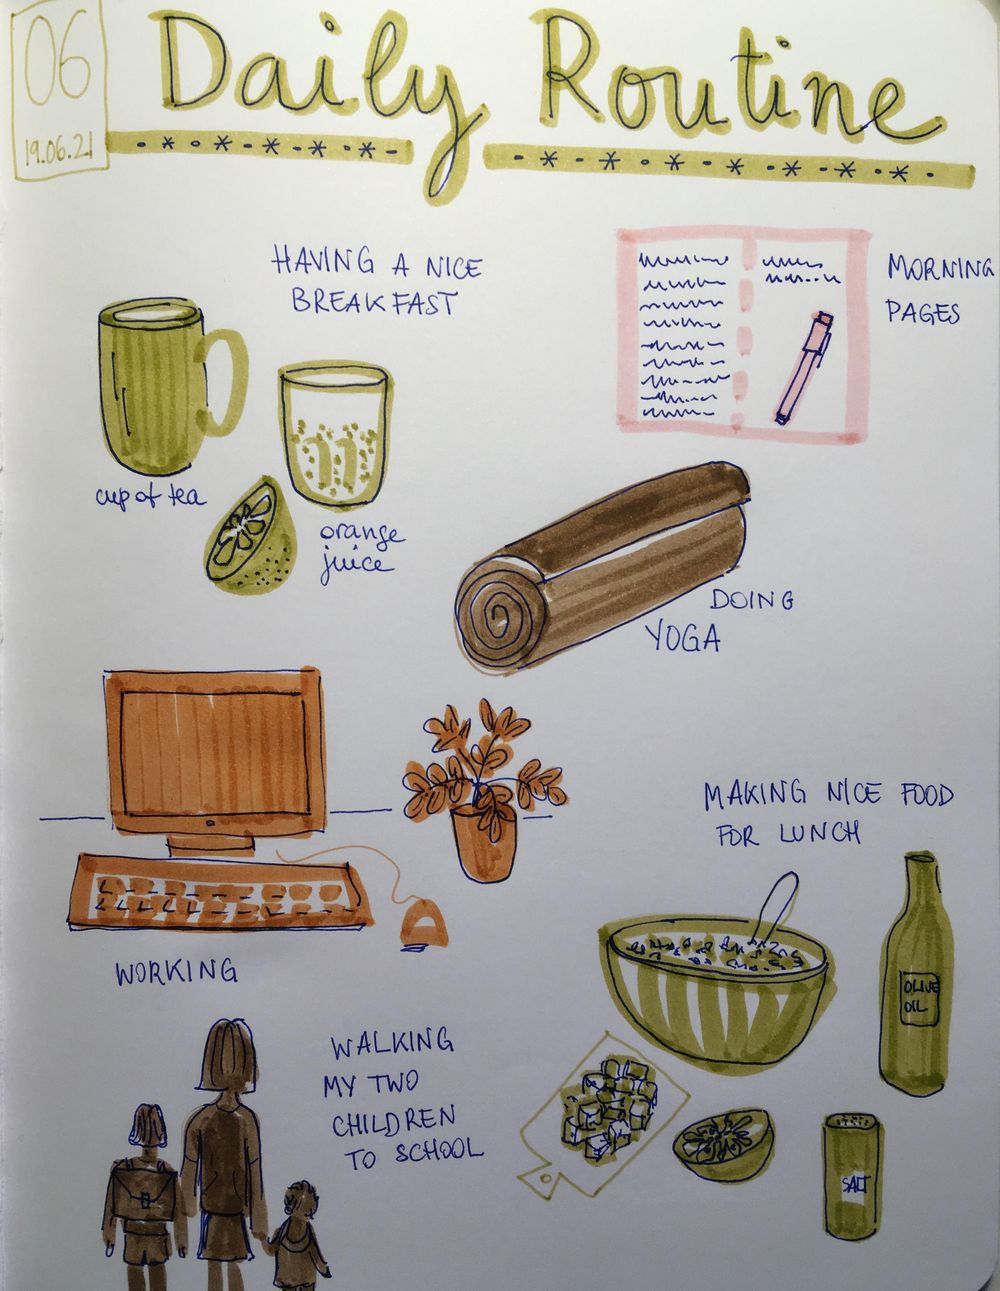 06
19.06.21
Daily Routine
HAVING A NICE
BREAKFAST
cup of tea
orange
juice
MORNING
PAGES
DOING
YOGA
WORKING
MAKING NICE FOOD
FOR LUNCH
OLIVE
OIL
SALT
WALKING
MY TWO
CHILDREN
TO SCHOOL